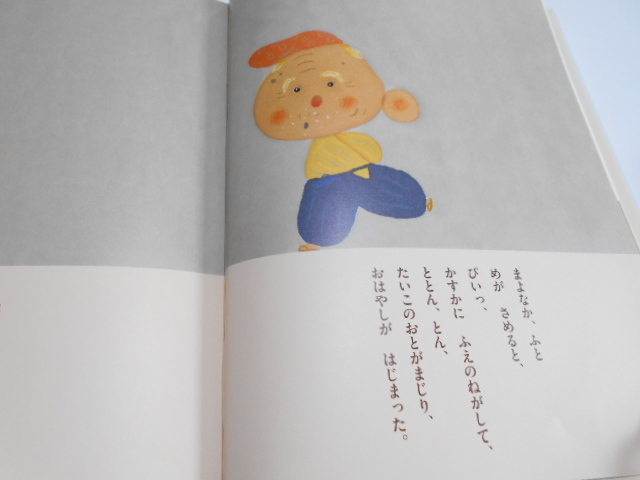 まよなか、ふと
めが　さめると、
ぴいっ、
かすかに　ふえのねがして、
ととん、とん、
たいこのおとがまじり、
おはやしが　はじまった。